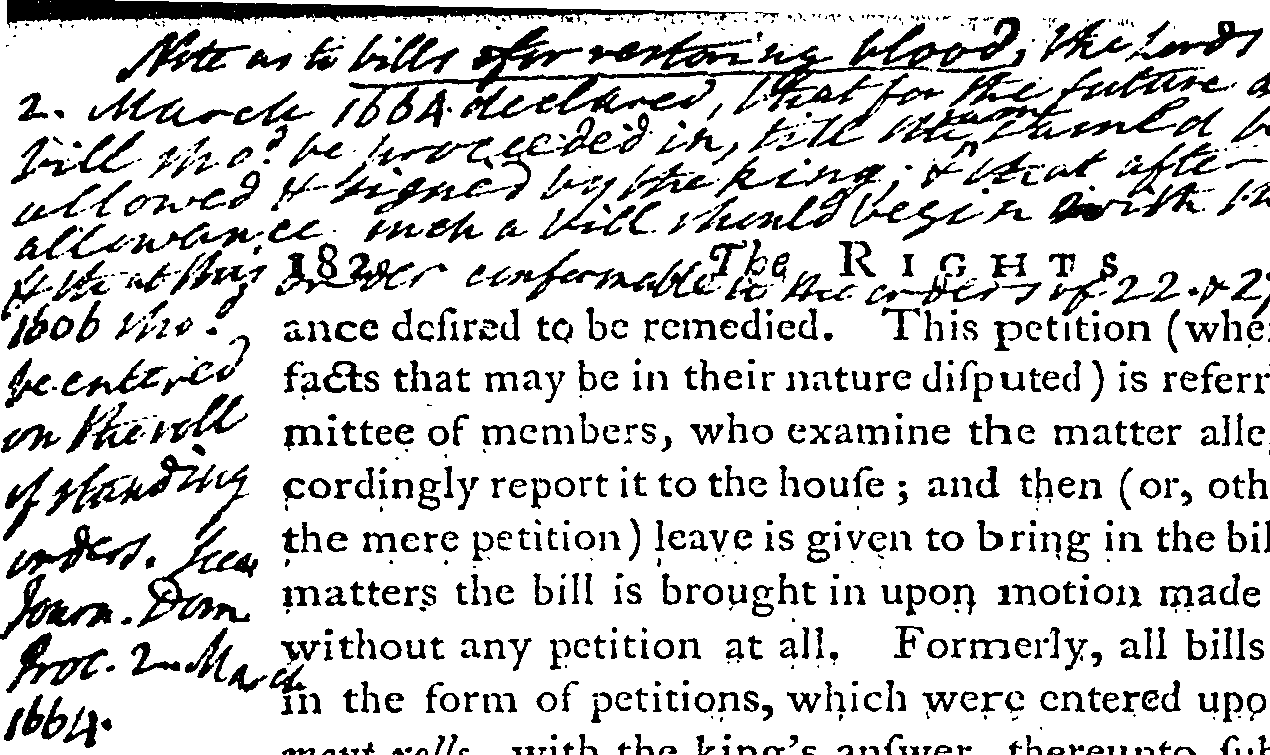 Note as to bills for restoring blood, the Lords
2. March 1664. declared, that for the future
bill sho.d be proceeded in, till the same
allowed & signed by the king; & that after
allowance such a bill should begin with
& that this order conformable to the orders of 22. & 2
1606 sho.d
be entered
on the roll
of standing
orders. See
Journ. Dom.
Proc. 2 March
1664.
182 The RIGHTS
ance deſired to be remedied. This petition (whe
facts that may be in their nature diſputed) is referr
mittee of members, who examine the matter alle
cordingly report it to the houſe; and then (or, oth
the mere petition) leave is given to bring in the bil
matters the bill is brought in upon motion made
without any petition at all. Formerly, all bills
in the form of petitions, which were entered upo
ment rolls, with the king's anſwer thereunto ſub